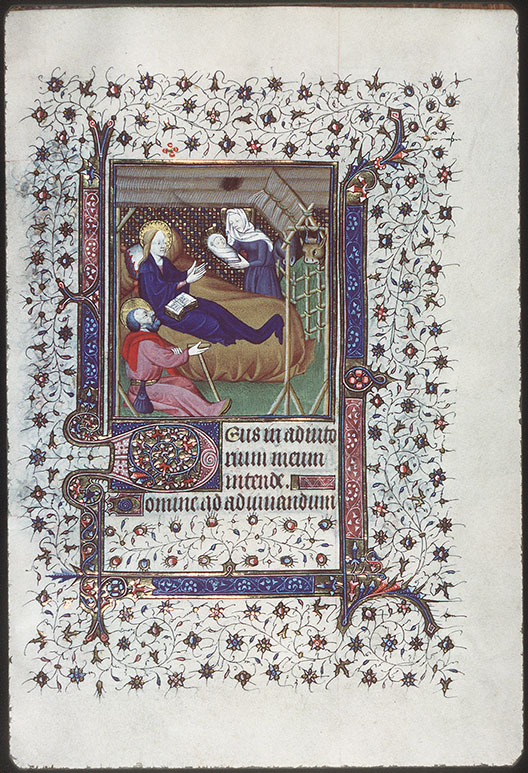 Deus in adiuto
rium meum
intende.
Domine ad adiuuandum